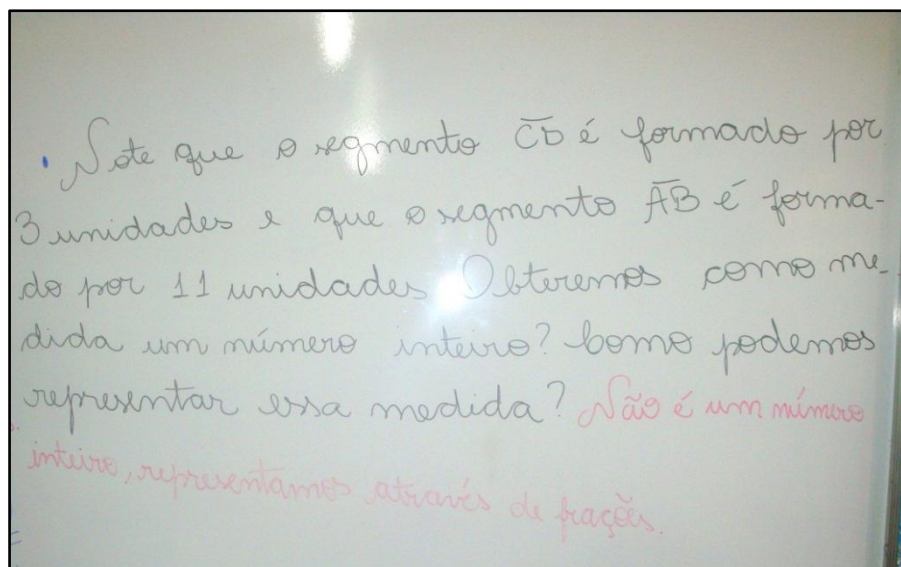 • Note que o segmento C̅D̅ é formado por
3 unidades e que o segmento A̅B̅ é forma-
do por 11 unidades Obteremos como me-
dida um número inteiro? Como podemos
representar essa medida? Não é um número
inteiro, representamos através de frações.